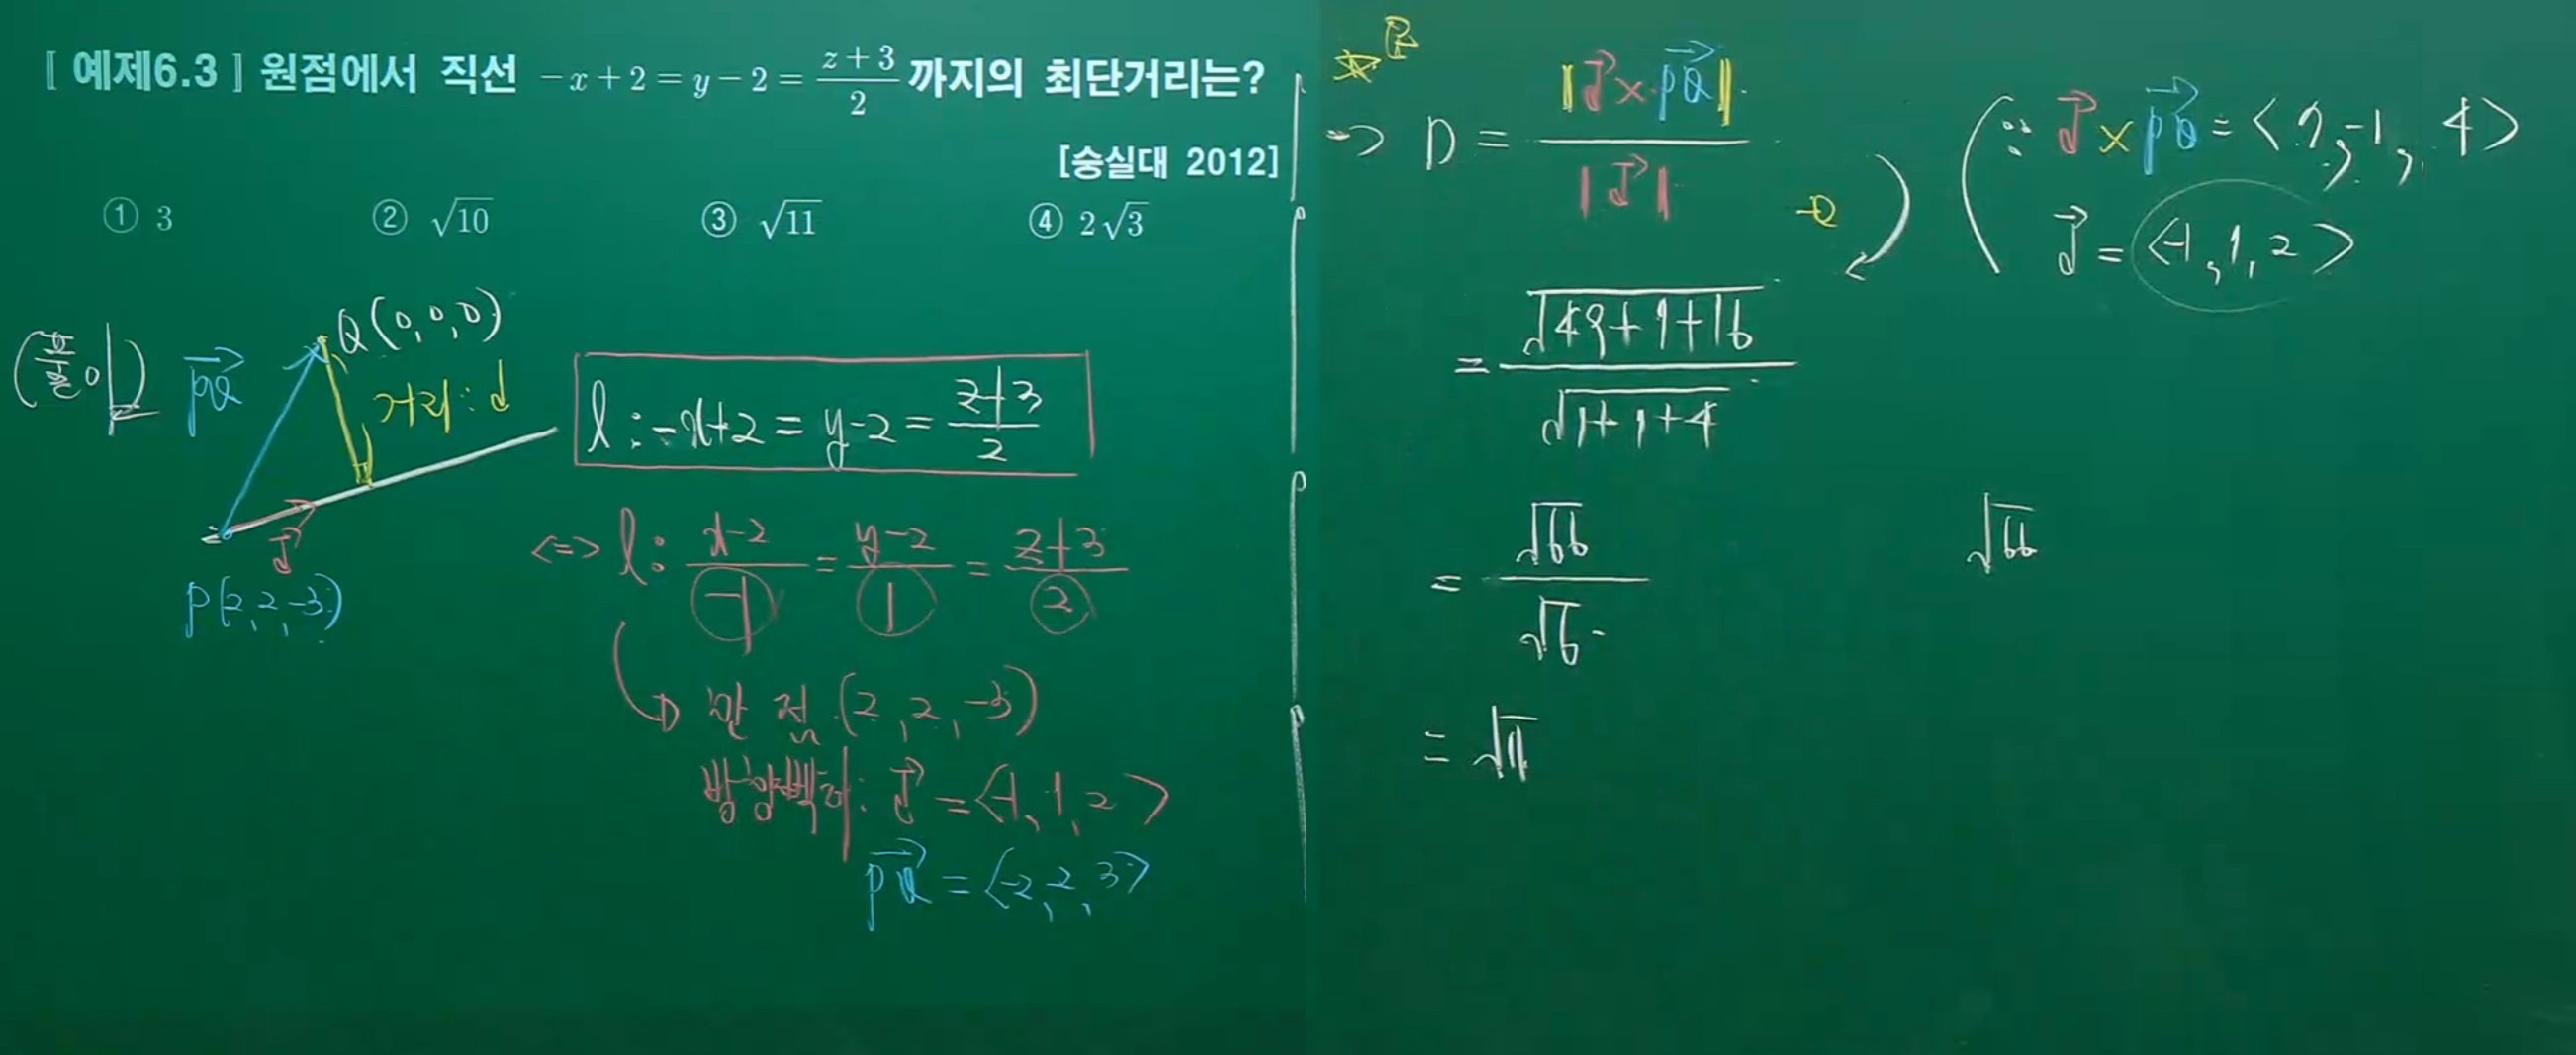 [ 예제6.3 ] 원점에서 직선 −x+2=y−2=\frac{z+3}{2} 까지의 최단거리는?
[숭실대 2012]
① 3 ② √10 ③ √11 ④ 2√3
(풀이)
Q(0,0,0)
PQ→
거리: d
d→
P(2,2,-3)
l : -x+2 = y-2 = \frac{z+3}{2}
<=> l : \frac{x-2}{-1} = \frac{y-2}{1} = \frac{z+3}{2}
한 점 (2,2,-3)
방향벡터: d→ = <-1,1,2>
PQ→ = <-2,-2,3>
=> D = \frac{|d→ × PQ→|}{|d→|}
(∵ d→ × PQ→ = <7,-1,4>
d→ = <-1,1,2>
= \frac{√49+1+16}{√1+1+4}
= \frac{√66}{√6}
√66
= √11